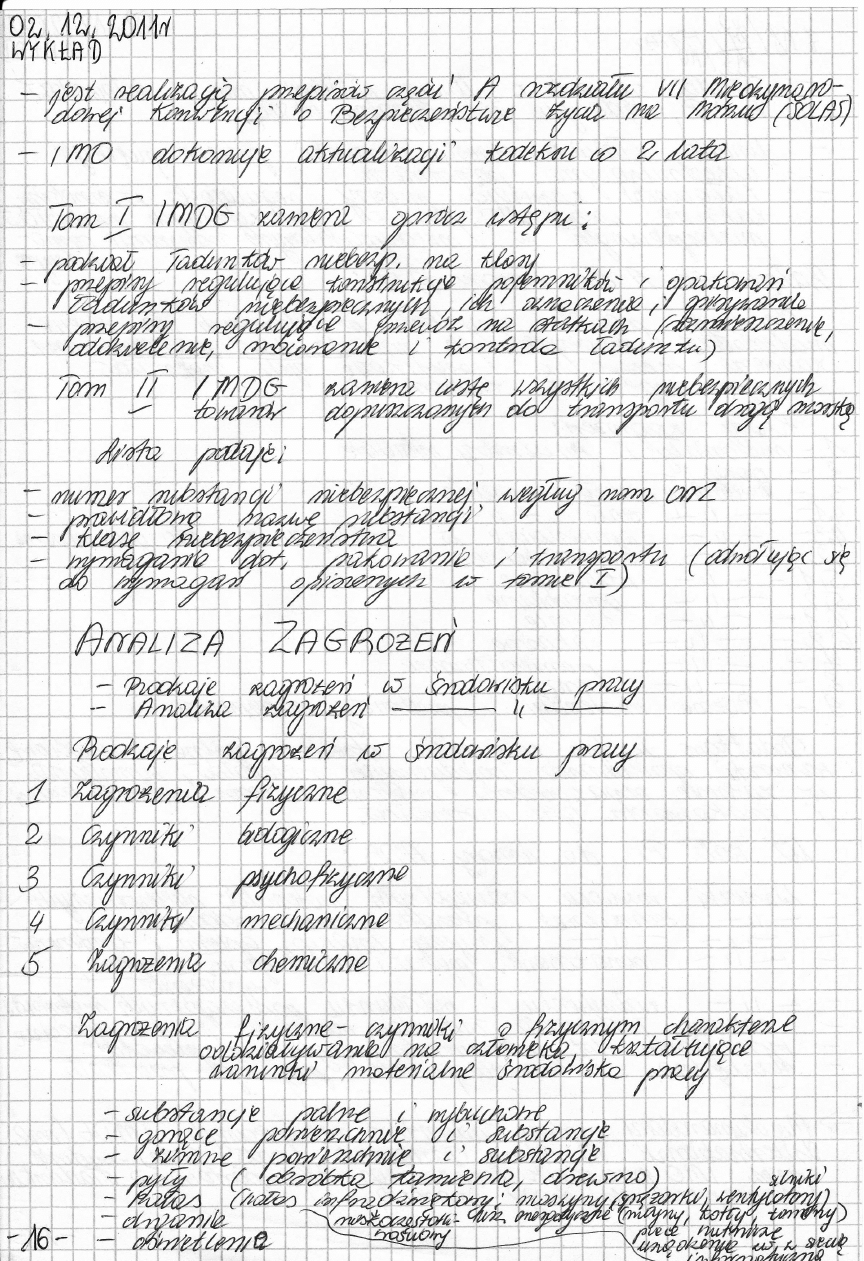 02.12.2011r
WYKŁAD
- jest realizacją przepisów części A rozdziału VII Międzynaro-
dowej Konwencji o Bezpieczeństwie Życia na Morzu (SOLAS)
- IMO dokonuje aktualizacji kodeksu co 2 lata
Tom I IMDG zawiera oprócz wstępu:
- podział ładunków niebezp. na klasy
- przepisy regulujące konstrukcję pojemników i opakowań
ładunków niebezpiecznych, ich oznaczenie i
- przepisy regulujące przewóz na statkach (rozmieszczenie,
oddzielenie, mocowanie i kontrola ładunku)
Tom II IMDG zawiera listę wszystkich niebezpiecznych
towarów dopuszczonych do transportu drogą morską
Lista podaje:
- numer substancji niebezpiecznej według nom ONZ
- prawidłową nazwę substancji
- klasę niebezpieczeństwa
- wymagania dot. pakowania i transportu (odwołując się
do wymagań opisanych w tomie I)
ANALIZA ZAGROŻEŃ
- Rodzaje zagrożeń w środowisku pracy
- Analiza zagrożeń —— 11 ——
Rodzaje zagrożeń w środowisku pracy
1 Zagrożenia fizyczne
2 Czynniki biologiczne
3 Czynniki psychofizyczne
4 Czynniki mechaniczne
5 Zagrożenia chemiczne
Zagrożenia fizyczne - czynniki o fizycznym charakterze
oddziaływania na człowieka, kształtujące
warunki materialne środowiska pracy
- substancje palne i wybuchowe
- gorące powierzchnie i substancje
- zimne powierzchnie i substancje
- pyły (obróbka kamienia, drewna)
silniki
- hałas (hałas infradźwiękowy: maszyny sprężarki, wentylatory)
niskoczęstotli-
wościowy
energetyczne (młyny, kotły
piece hutnicze
urządzenia
- drgania
- oświetlenie
-16-